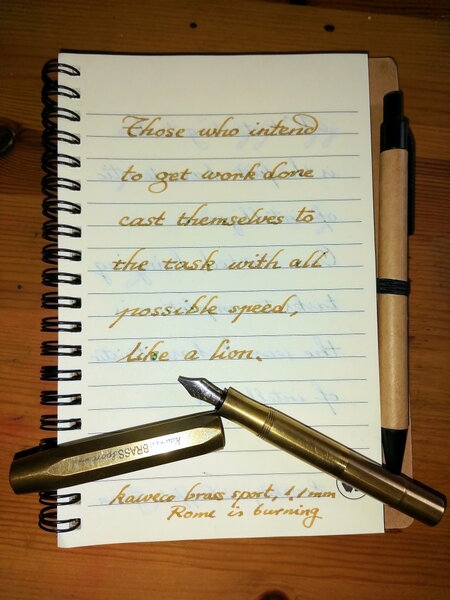 Those who intend
to get work done
cast themselves to
the task with all
possible speed,
like a lion.
BRASS Sport
kaweco brass sport, 1,1 mm
Rome is burning